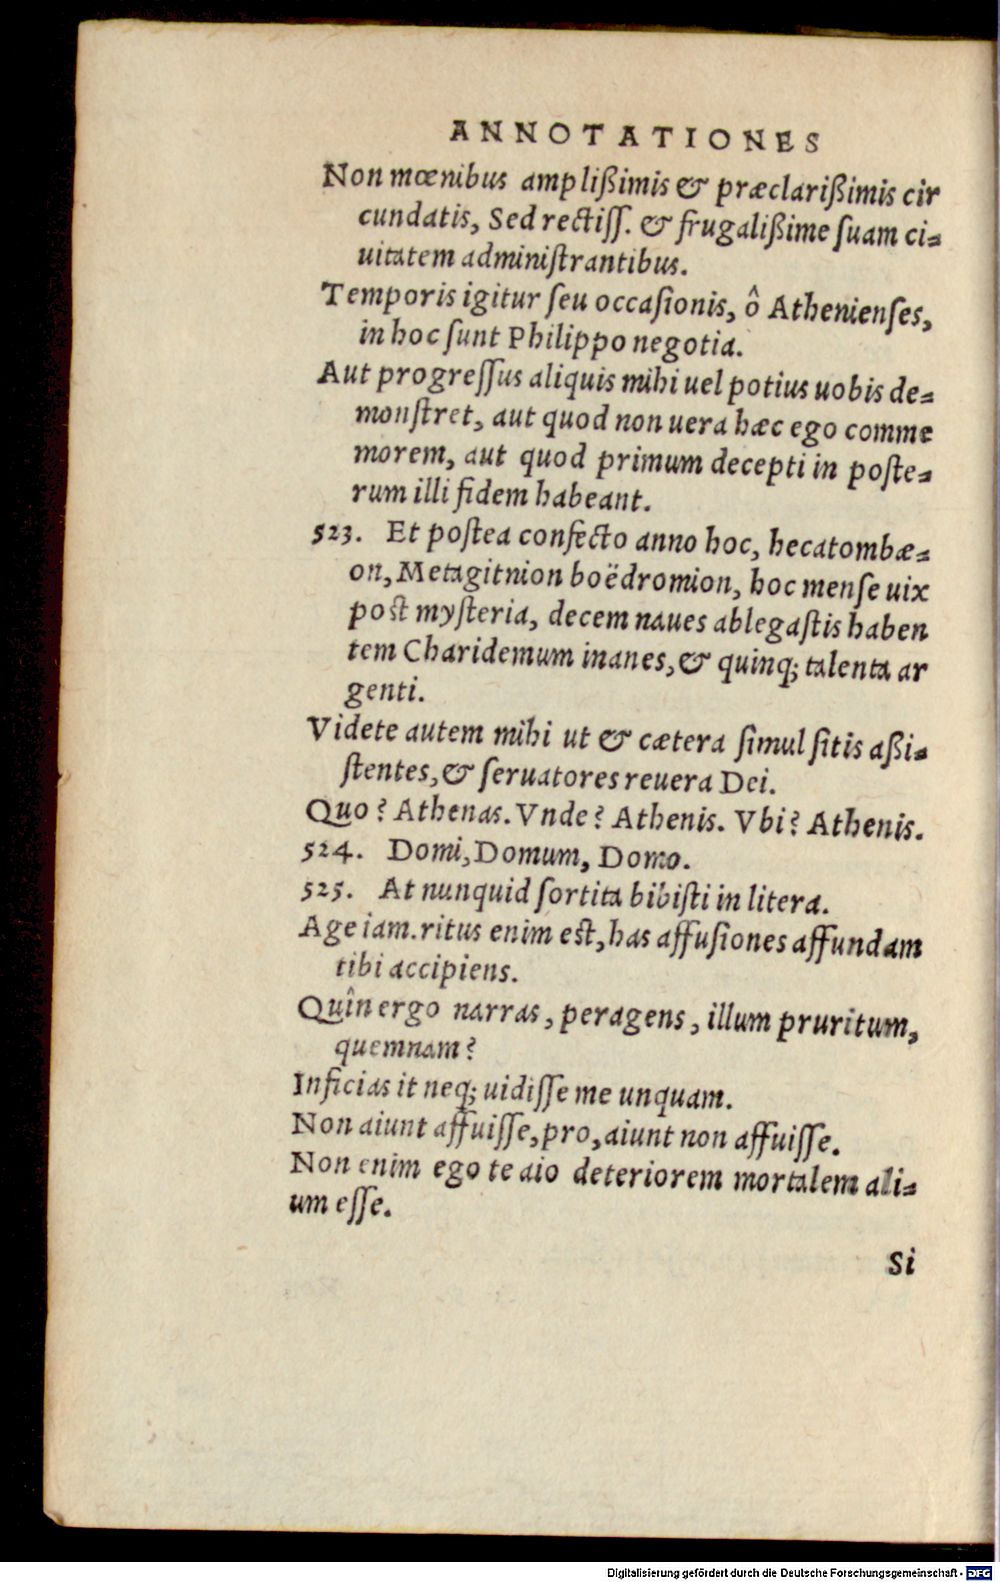 ANNOTATIONES
Non mœnibus amplißimis & præclarißimis cir
cundatis, Sed rectiſſ. & frugalißime ſuam ci⸗
uitatem adminiſtrantibus.
Temporis igitur ſeu occaſionis, ô Athenienſes,
in hoc ſunt Philippo negotia.
Aut progreſſus aliquis mihi uel potius uobis de⸗
monſtret, aut quod non uera hæc ego comme
morem, aut quod primum decepti in poſte⸗
rum illi fidem habeant.
523. Et poſtea confecto anno hoc, hecatombæ⸗
on, Metagitnion boëdromion, hoc menſe uix
post myſteria, decem naues ablegaſtis haben
tem Charidemum inanes, & quinq; talenta ar
genti.
Videte autem mihi ut & cætera ſimul ſitis aßi⸗
ſtentes, & ſeruatores reuera Dei.
Quo? Athenas. Vnde? Athenis. Vbi? Athenis.
524. Domi, Domum, Domo.
525. At nunquid ſortita bibiſti in litera.
Age iam. ritus enim est, has affuſiones affundam
tibi accipiens.
Quîn ergo narras, peragens, illum pruritum,
quemnam?
Inficias it neq; uidiſſe me unquam.
Non aiunt affuiſſe, pro, aiunt non affuiſſe.
Non enim ego te aio deteriorem mortalem ali⸗
um eſſe.
Si
Digitalisierung gefördert durch die Deutsche Forschungsgemeinschaft - DFG